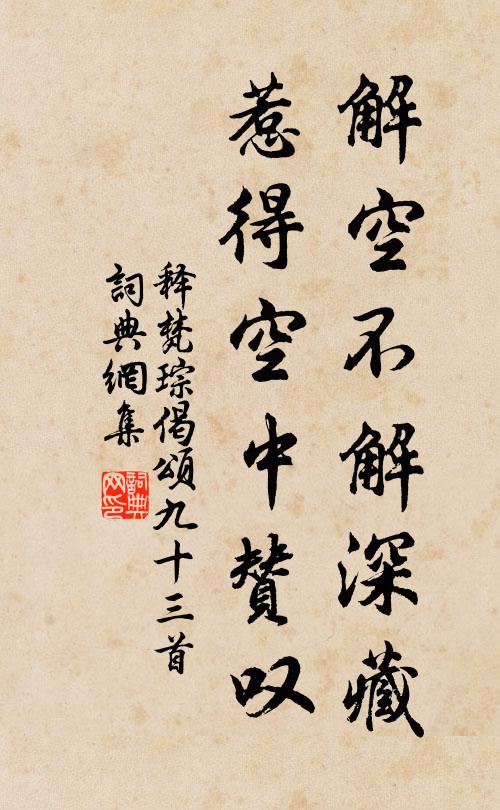 解空不解深藏
惹得空中賛叹
释梵琮偈頌九十三首
詞典網集
詞典
网印